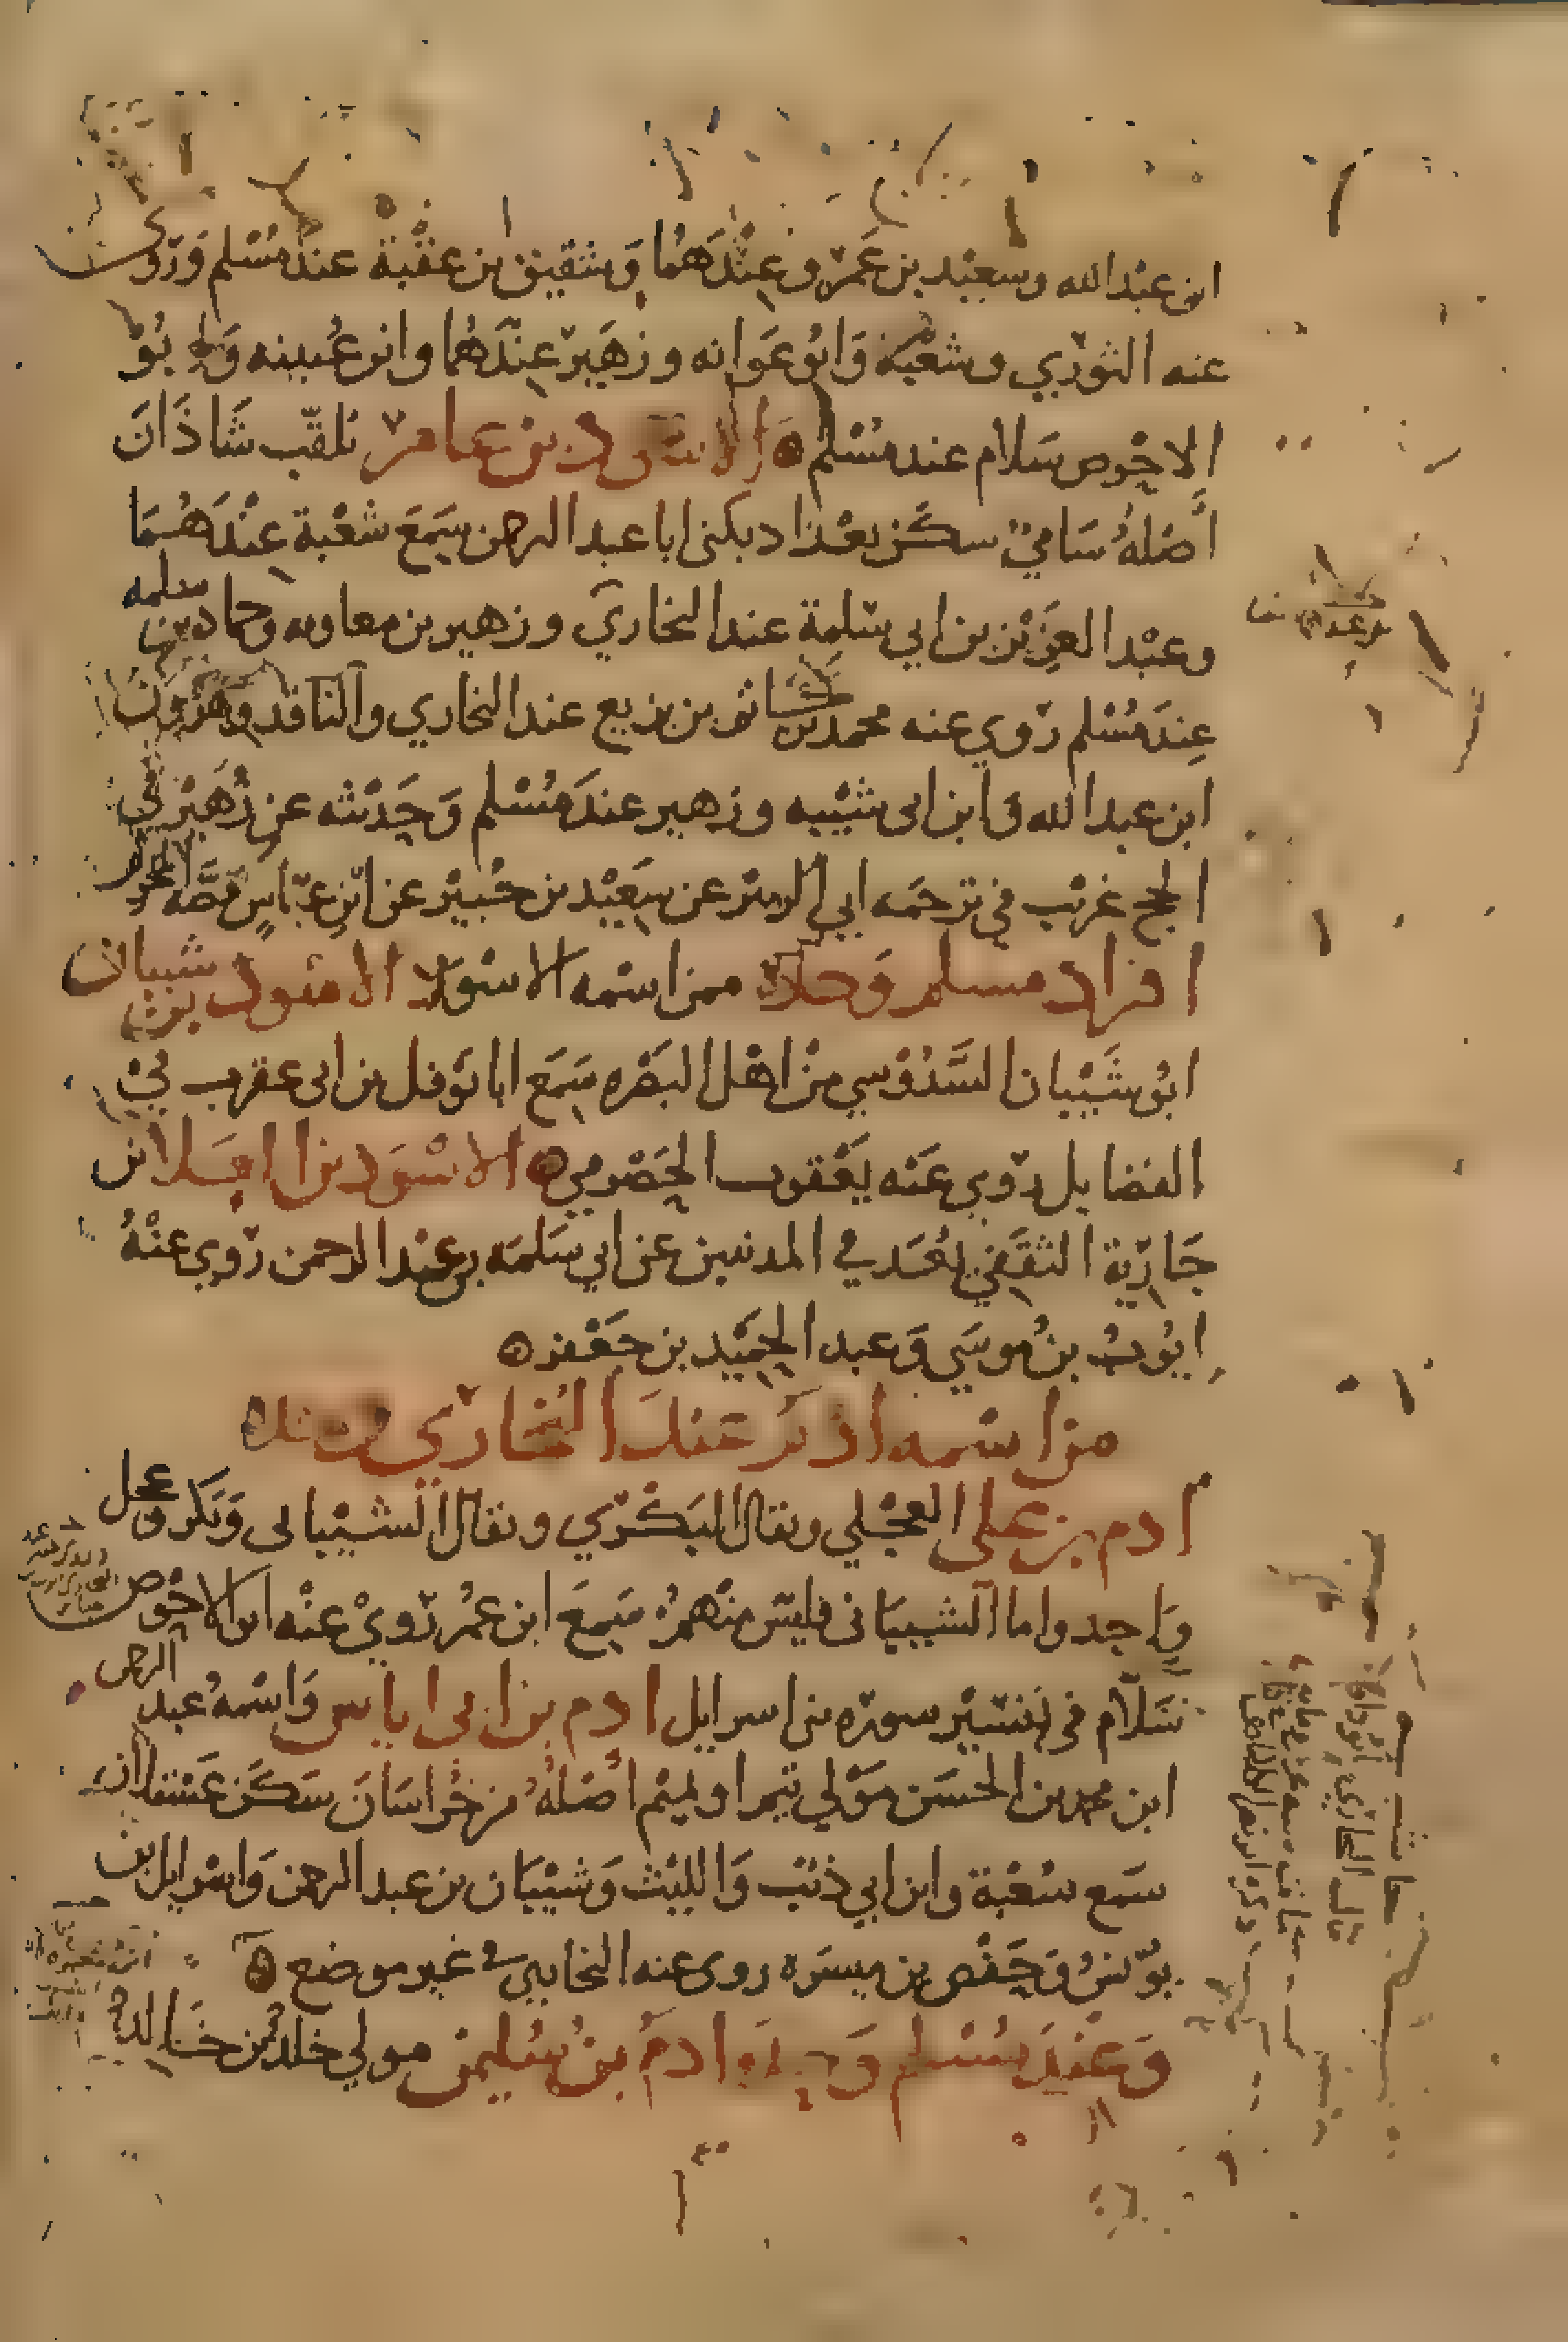 ابن عبد الله وسعيد بن عمرو عندهما وشقيق بن عقبة عند مسلم وروى
عنه الثوري وشعبة وابو عوانه وزهير عندهما وابن عيينه وابو
الاحوص سلام عند مسلم الاسود بن عامر يلقب شاذان
أصله شامي سكن بغداد يكنى ابا عبد الرحمن سمع شعبة عندهما
وعبد العزيز بن ابي سلمة عند البخاري وزهير بن معاويه وحماد بن سلمه
عند مسلم روي عنه محمد بن حاتم بن بزيع عند البخاري والناقد وهرون
ابن عبد الله وابن ابى شيبه وزهير عند مسلم وحديثه عن زهير في
الحج غريب في ترجمه ابي الزبير عن سعيد بن جبير عن ابن عباس قصه المحرم
افراد مسلم وحده ممن اسمه الاسود الاسود بن شيبان
ابو شيبان السدوسي من اهل البصره سمع ابا نوفل بن ابى عقرب في
الفضايل روي عنه يعقوب الحضرمي الاسود بن العلا بن
جارية الثقفي يعد في المدنيين عن ابي سلمه بن عبد الرحمن روي عنه
ايوب بن موسي وعبد الحميد بن جعفر
من اسمه ادم عند البخاري وحده
ادم بن على العجلي ويقال البكري ويقال الشيبانى وبكر وعجل
واحد واما الشيبانى فليس منهم سمع ابن عمر روي عنه ابو الاحوص
سلام في تفسير سورة بنى اسرايل ادم بن ابى اياس واسمه عبد الرحمن
ابن محمد بن الحسن مولي تيم او تميم أصله من خراسان سكن عسقلان
سمع شعبة وابن ابي ذئب والليث وشيبان بن عبد الرحمن واسرايل بن
يونس وحفص بن ميسره روى عنه البخاري في غير موضع
وعند مسلم وحده ادم بن سليمن مولي خلد بن خالد